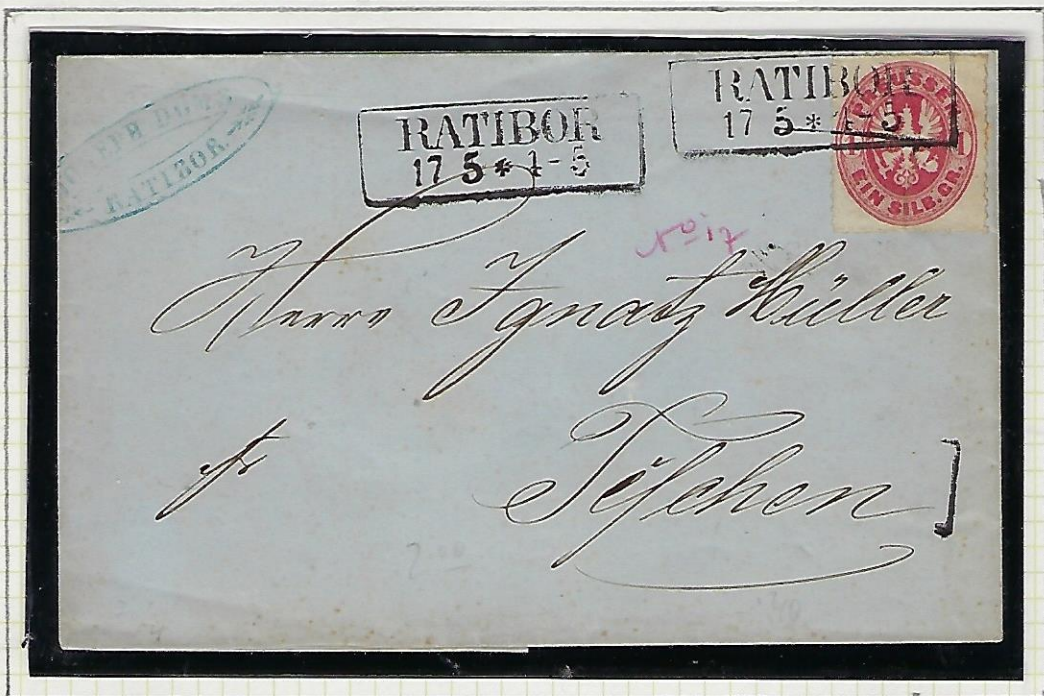 RATIBOR
RATIBOR
17 5 * 4-5
RATIBOR
17 5 * 4-5
PREUSSEN
EIN SILB. GR.
No 17
Herrn Ignatz Müller
fr
Teschen